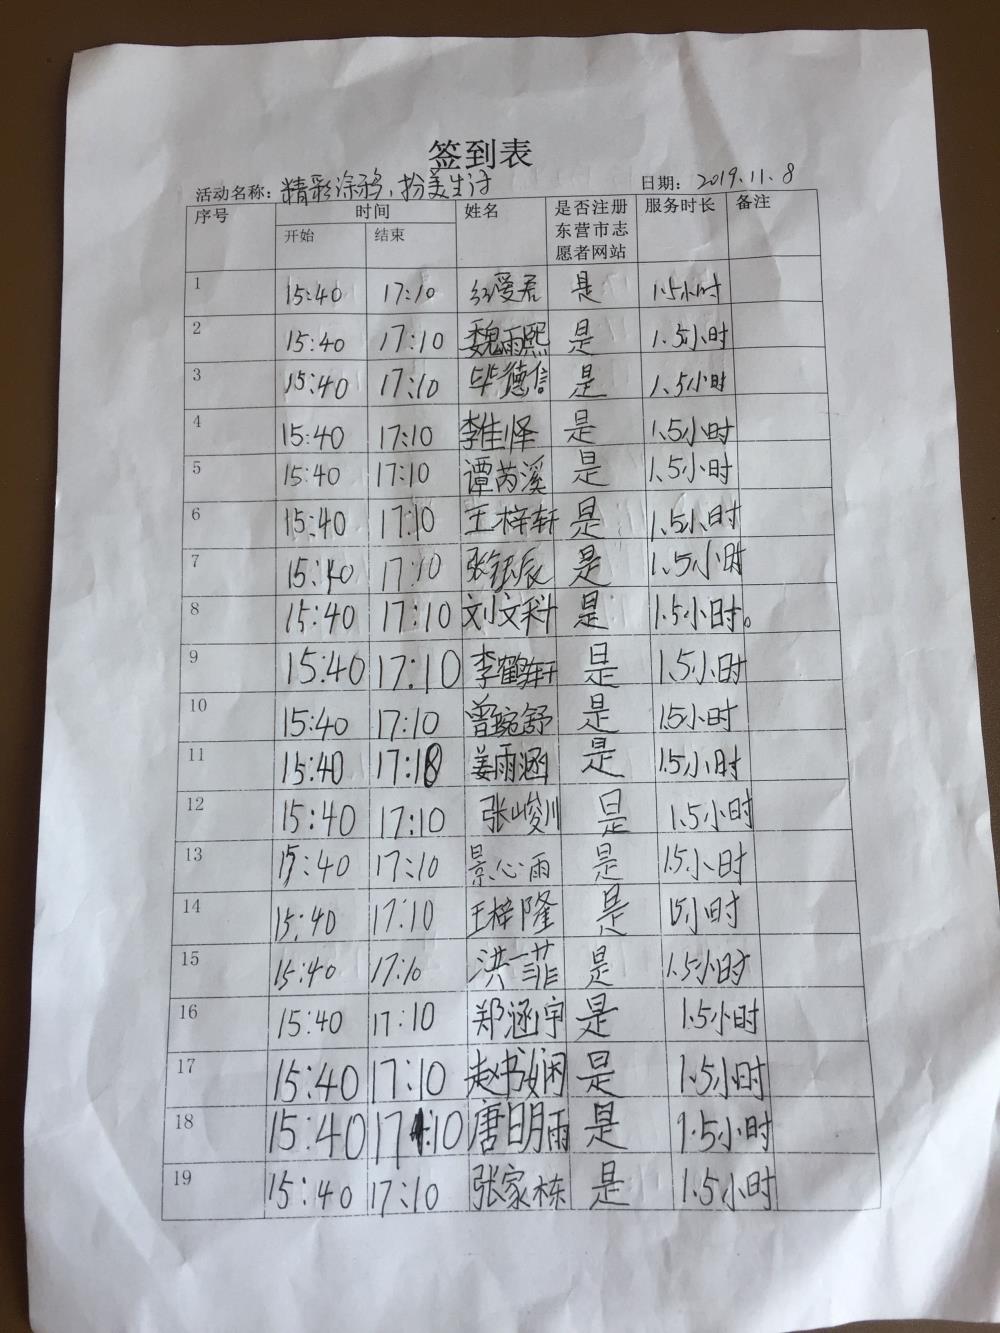 签到表
活动名称：精彩涂鸦、扮美生活 日期：2019.11.8
序号 时间 姓名 是否注册东营市志愿者网站 服务时长 备注
开始 结束
1 15:40 17:10 爱君 是 1.5小时
2 15:40 17:10 魏雨熙 是 1.5小时
3 15:40 17:10 毕德信 是 1.5小时
4 15:40 17:10 李佳怿 是 1.5小时
5 15:40 17:10 谭芮溪 是 1.5小时
6 15:40 17:10 王梓轩 是 1.5小时
7 15:40 17:10 张钰辰 是 1.5小时
8 15:40 17:10 刘文科 是 1.5小时。
9 15:40 17:10 李鹤轩 是 1.5小时
10 15:40 17:10 曾琬舒 是 1.5小时
11 15:40 17:18 姜雨涵 是 1.5小时
12 15:40 17:10 张峻川 是 1.5小时
13 15:40 17:10 景心雨 是 1.5小时
14 15:40 17:10 王梓隆 是 15小时
15 15:40 17:10 洪一菲 是 1.5小时
16 15:40 17:10 郑涵宇 是 1.5小时
17 15:40 17:10 赵书娴 是 1.5小时
18 15:40 17:10 唐明雨 是 1.5小时
19 15:40 17:10 张家栋 是 1.5小时